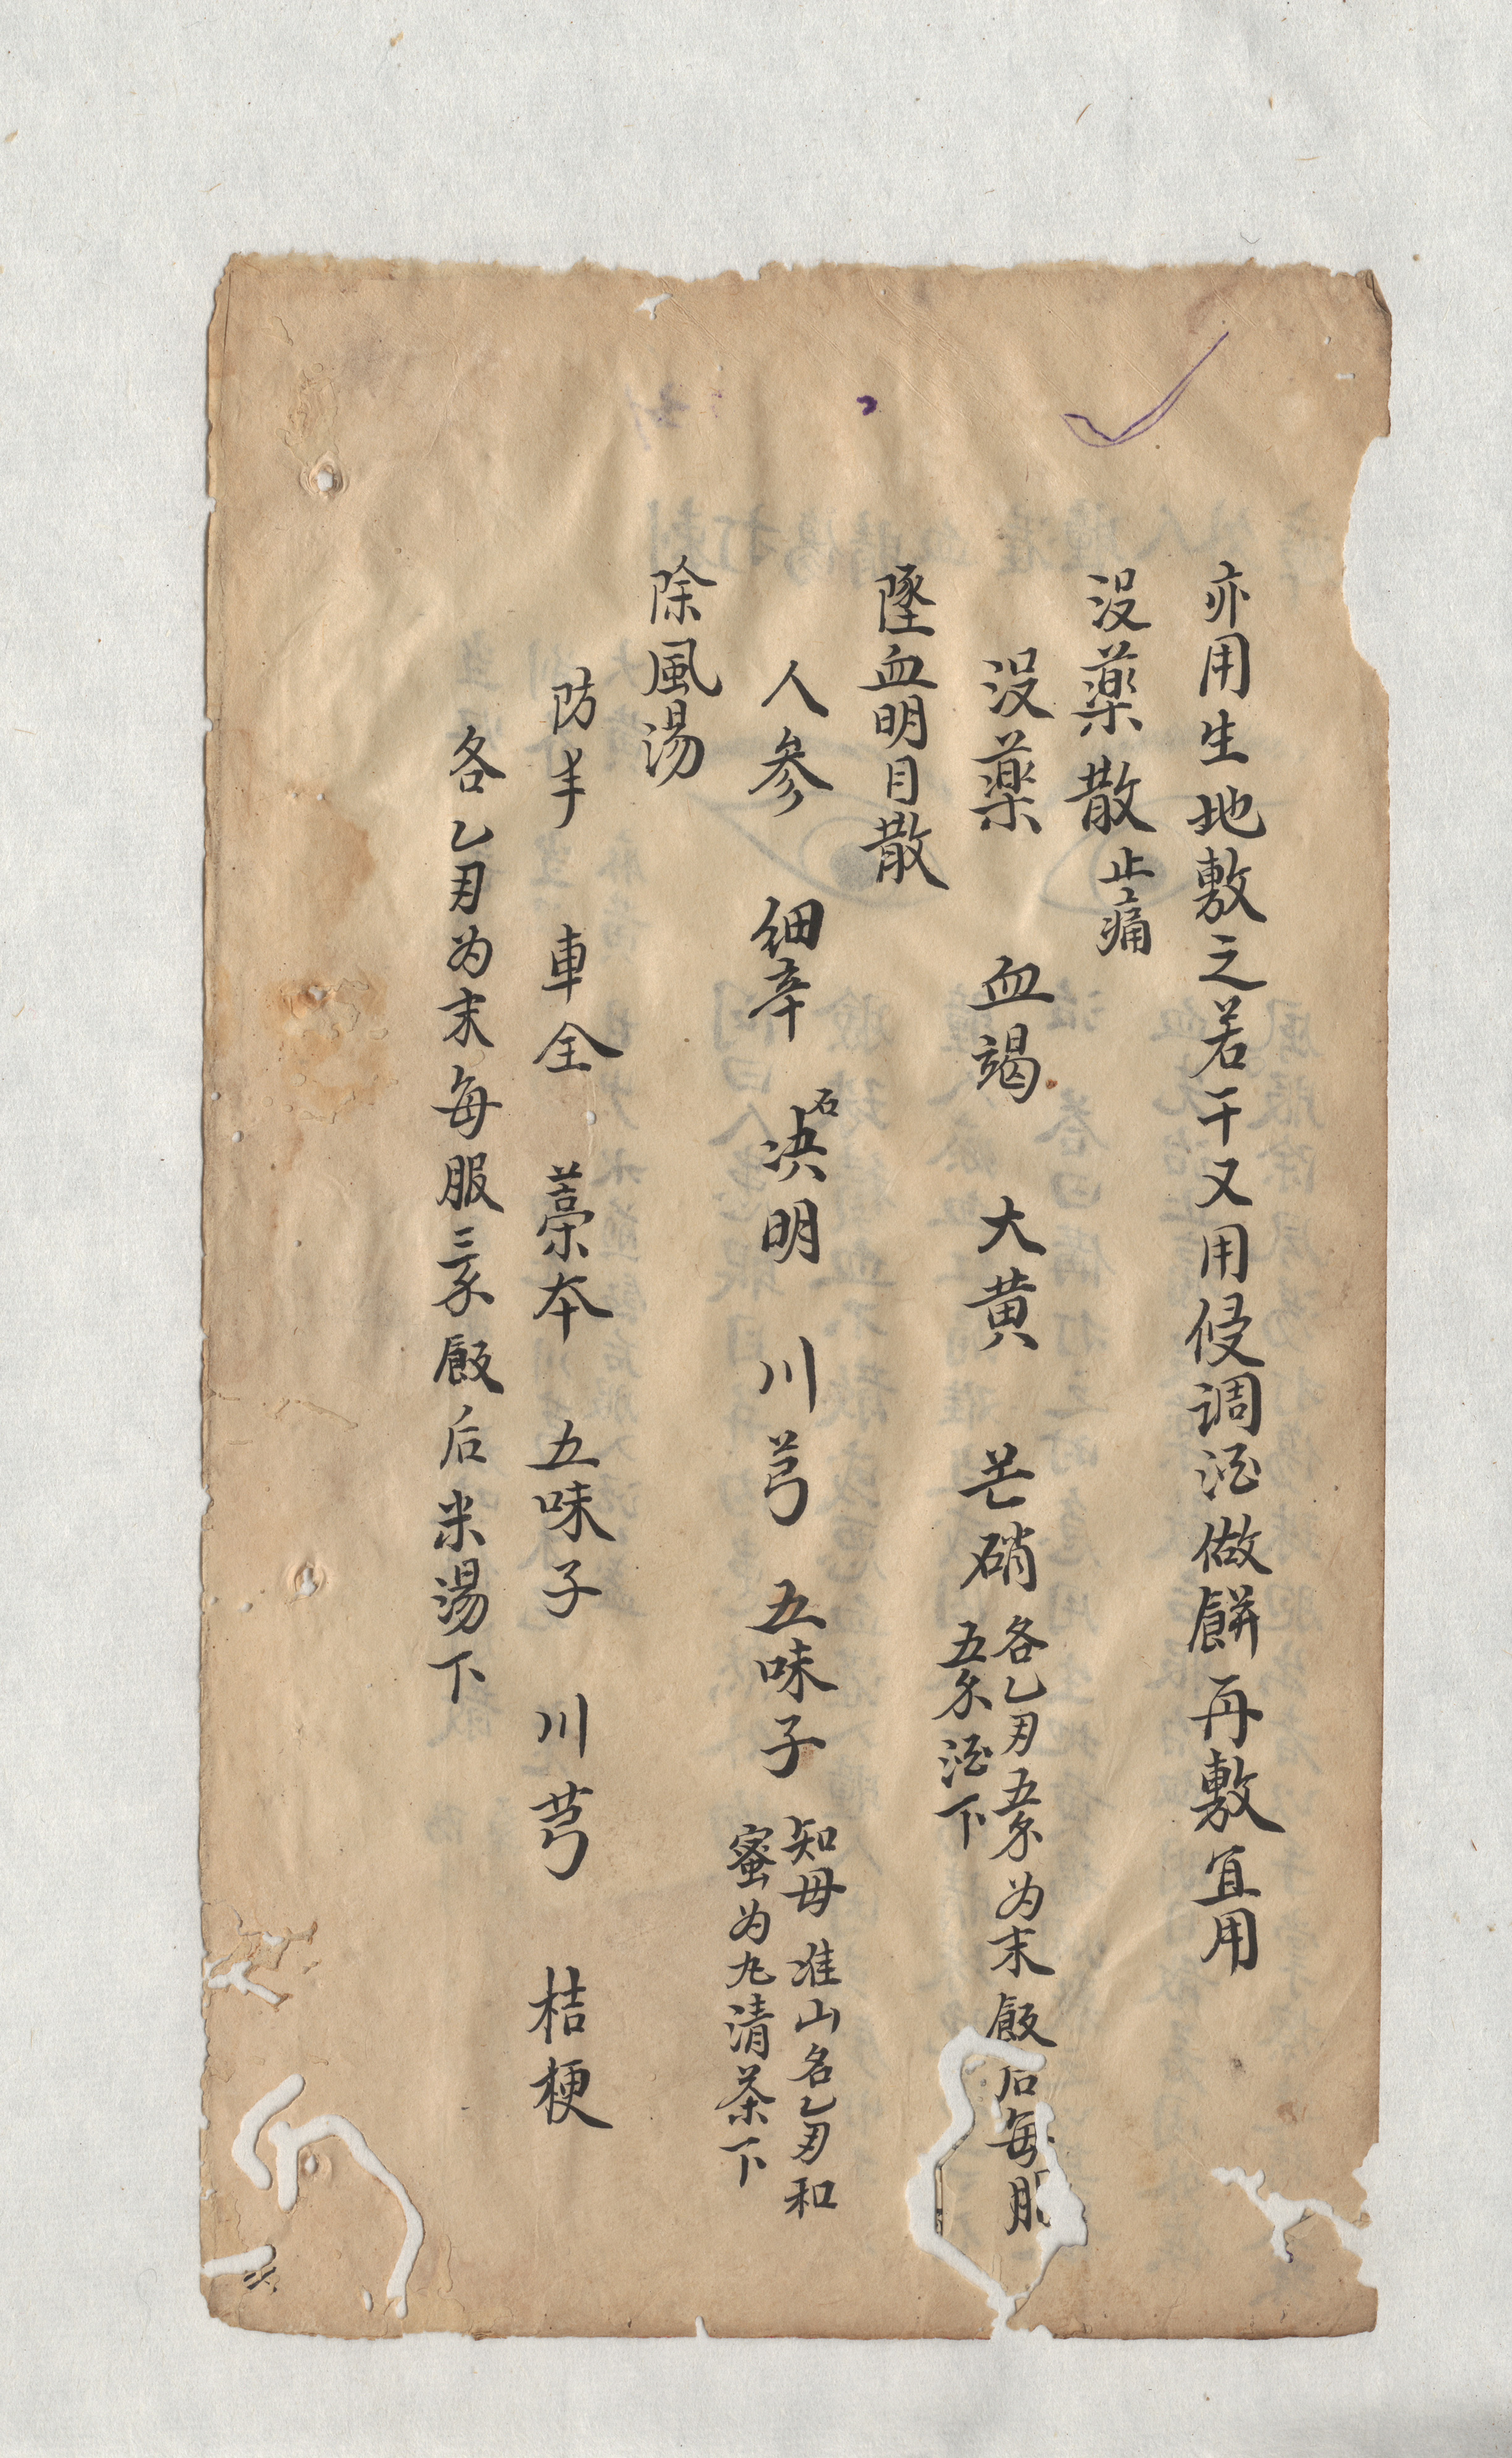 亦用生地敷之若干又用侵调酒做餅再敷宜用
没薬散止痛
没薬 血竭 大黄 芒硝 各乙刄五分为末飯后每服
五分酒下
墜血明目散
人参 细辛 石决明 川芎 五味子 知母淮山各乙刄和
蜜为丸清茶下
除風湯
防丰 車全 藁本 五味子 川芎 桔梗
各乙刄为末每服三分飯后米湯下